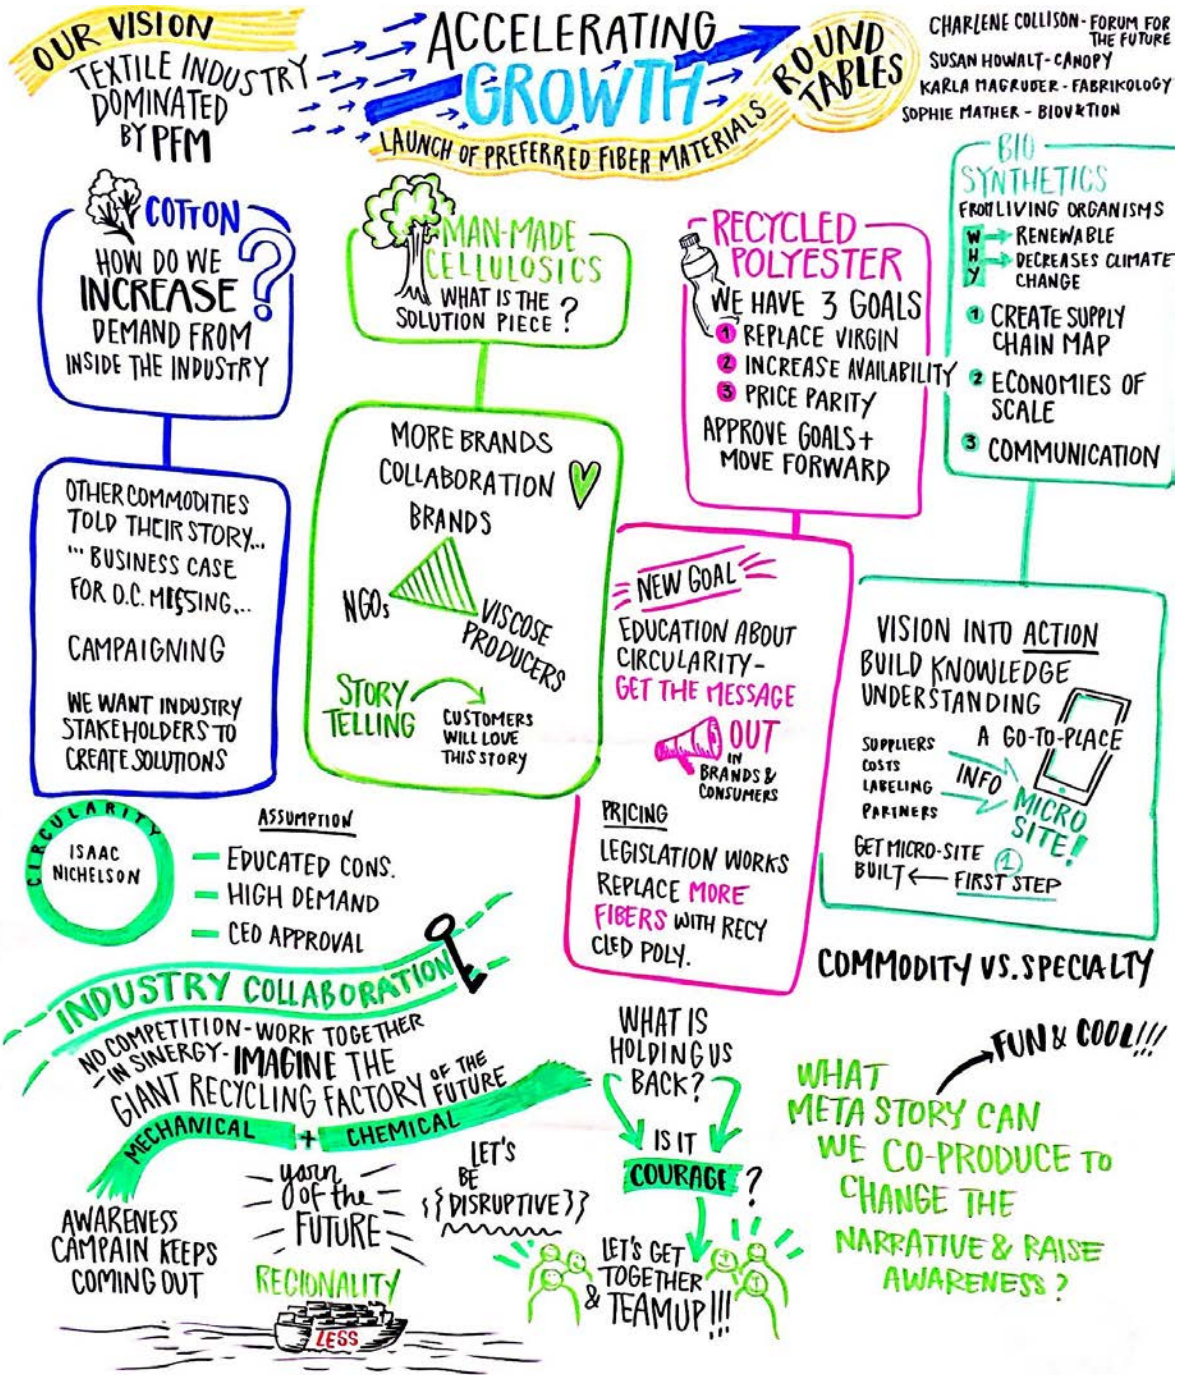 OUR VISION
TEXTILE INDUSTRY
DOMINATED
BY PFM
ACCELERATING
GROWTH
LAUNCH OF PREFERRED FIBER MATERIALS
ROUND
TABLES
CHARLENE COLLISON - FORUM FOR
THE FUTURE
SUSAN HOWALT - CANOPY
KARLA MAGRUDER - FABRIKOLOGY
SOPHIE MATHER - BIOV8TION
COTTON
HOW DO WE
INCREASE
DEMAND FROM
INSIDE THE INDUSTRY
?
OTHER COMMODITIES
TOLD THEIR STORY...
... BUSINESS CASE
FOR O.C. MISSING...
CAMPAIGNING
WE WANT INDUSTRY
STAKEHOLDERS TO
CREATE SOLUTIONS
MAN-MADE
CELLULOSICS
WHAT IS THE
SOLUTION PIECE ?
MORE BRANDS
COLLABORATION
BRANDS
NGOs
VISCOSE
PRODUCERS
STORY
TELLING
CUSTOMERS
WILL LOVE
THIS STORY
RECYCLED
POLYESTER
WE HAVE 3 GOALS
1 REPLACE VIRGIN
2 INCREASE AVAILABILITY
3 PRICE PARITY
APPROVE GOALS +
MOVE FORWARD
NEW GOAL
EDUCATION ABOUT
CIRCULARITY -
GET THE MESSAGE
OUT
IN
BRANDS &
CONSUMERS
PRICING
LEGISLATION WORKS
REPLACE MORE
FIBERS WITH RECY
CLED POLY.
BIO
SYNTHETICS
FROM LIVING ORGANISMS
WHY
RENEWABLE
DECREASES CLIMATE
CHANGE
1 CREATE SUPPLY
CHAIN MAP
2 ECONOMIES OF
SCALE
3 COMMUNICATION
VISION INTO ACTION
BUILD KNOWLEDGE
UNDERSTANDING
A GO-TO-PLACE
SUPPLIERS
COSTS
LABELING
PARTNERS
INFO
MICRO
SITE!
GET MICRO-SITE
BUILT ← FIRST STEP
1
COMMODITY VS. SPECIALTY
CIRCULARITY
ISAAC
NICHELSON
ASSUMPTION
- EDUCATED CONS.
- HIGH DEMAND
- CEO APPROVAL
INDUSTRY COLLABORATION
NO COMPETITION - WORK TOGETHER
- IN SINERGY - IMAGINE THE
GIANT RECYCLING FACTORY OF THE FUTURE
MECHANICAL + CHEMICAL
AWARENESS
CAMPAIN KEEPS
COMING OUT
yarn
of the
FUTURE
REGIONALITY
LESS
LET'S
BE
{{DISRUPTIVE}}
WHAT IS
HOLDING US
BACK?
IS IT
COURAGE ?
LET'S GET
TOGETHER
& TEAM UP!!!
FUN & COOL!!!
WHAT
META STORY CAN
WE CO-PRODUCE TO
CHANGE THE
NARRATIVE & RAISE
AWARENESS ?